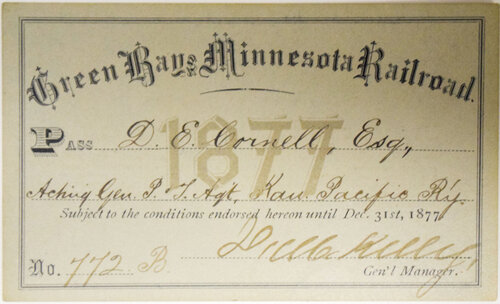 Green Bay & Minnesota Railroad.
1877
Pass D. E. Cornell, Esq,
Acting Gen. P. & T. Agt, Kan. Pacific R'y.
Subject to the conditions endorsed hereon until Dec. 31st, 1877
No. 772 B.
Gen'l Manager.